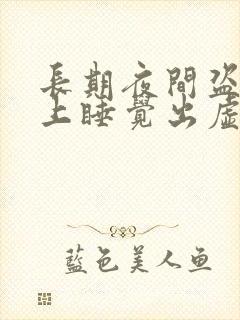 長期夜間盜
上睡覺出虛
藍色美人魚